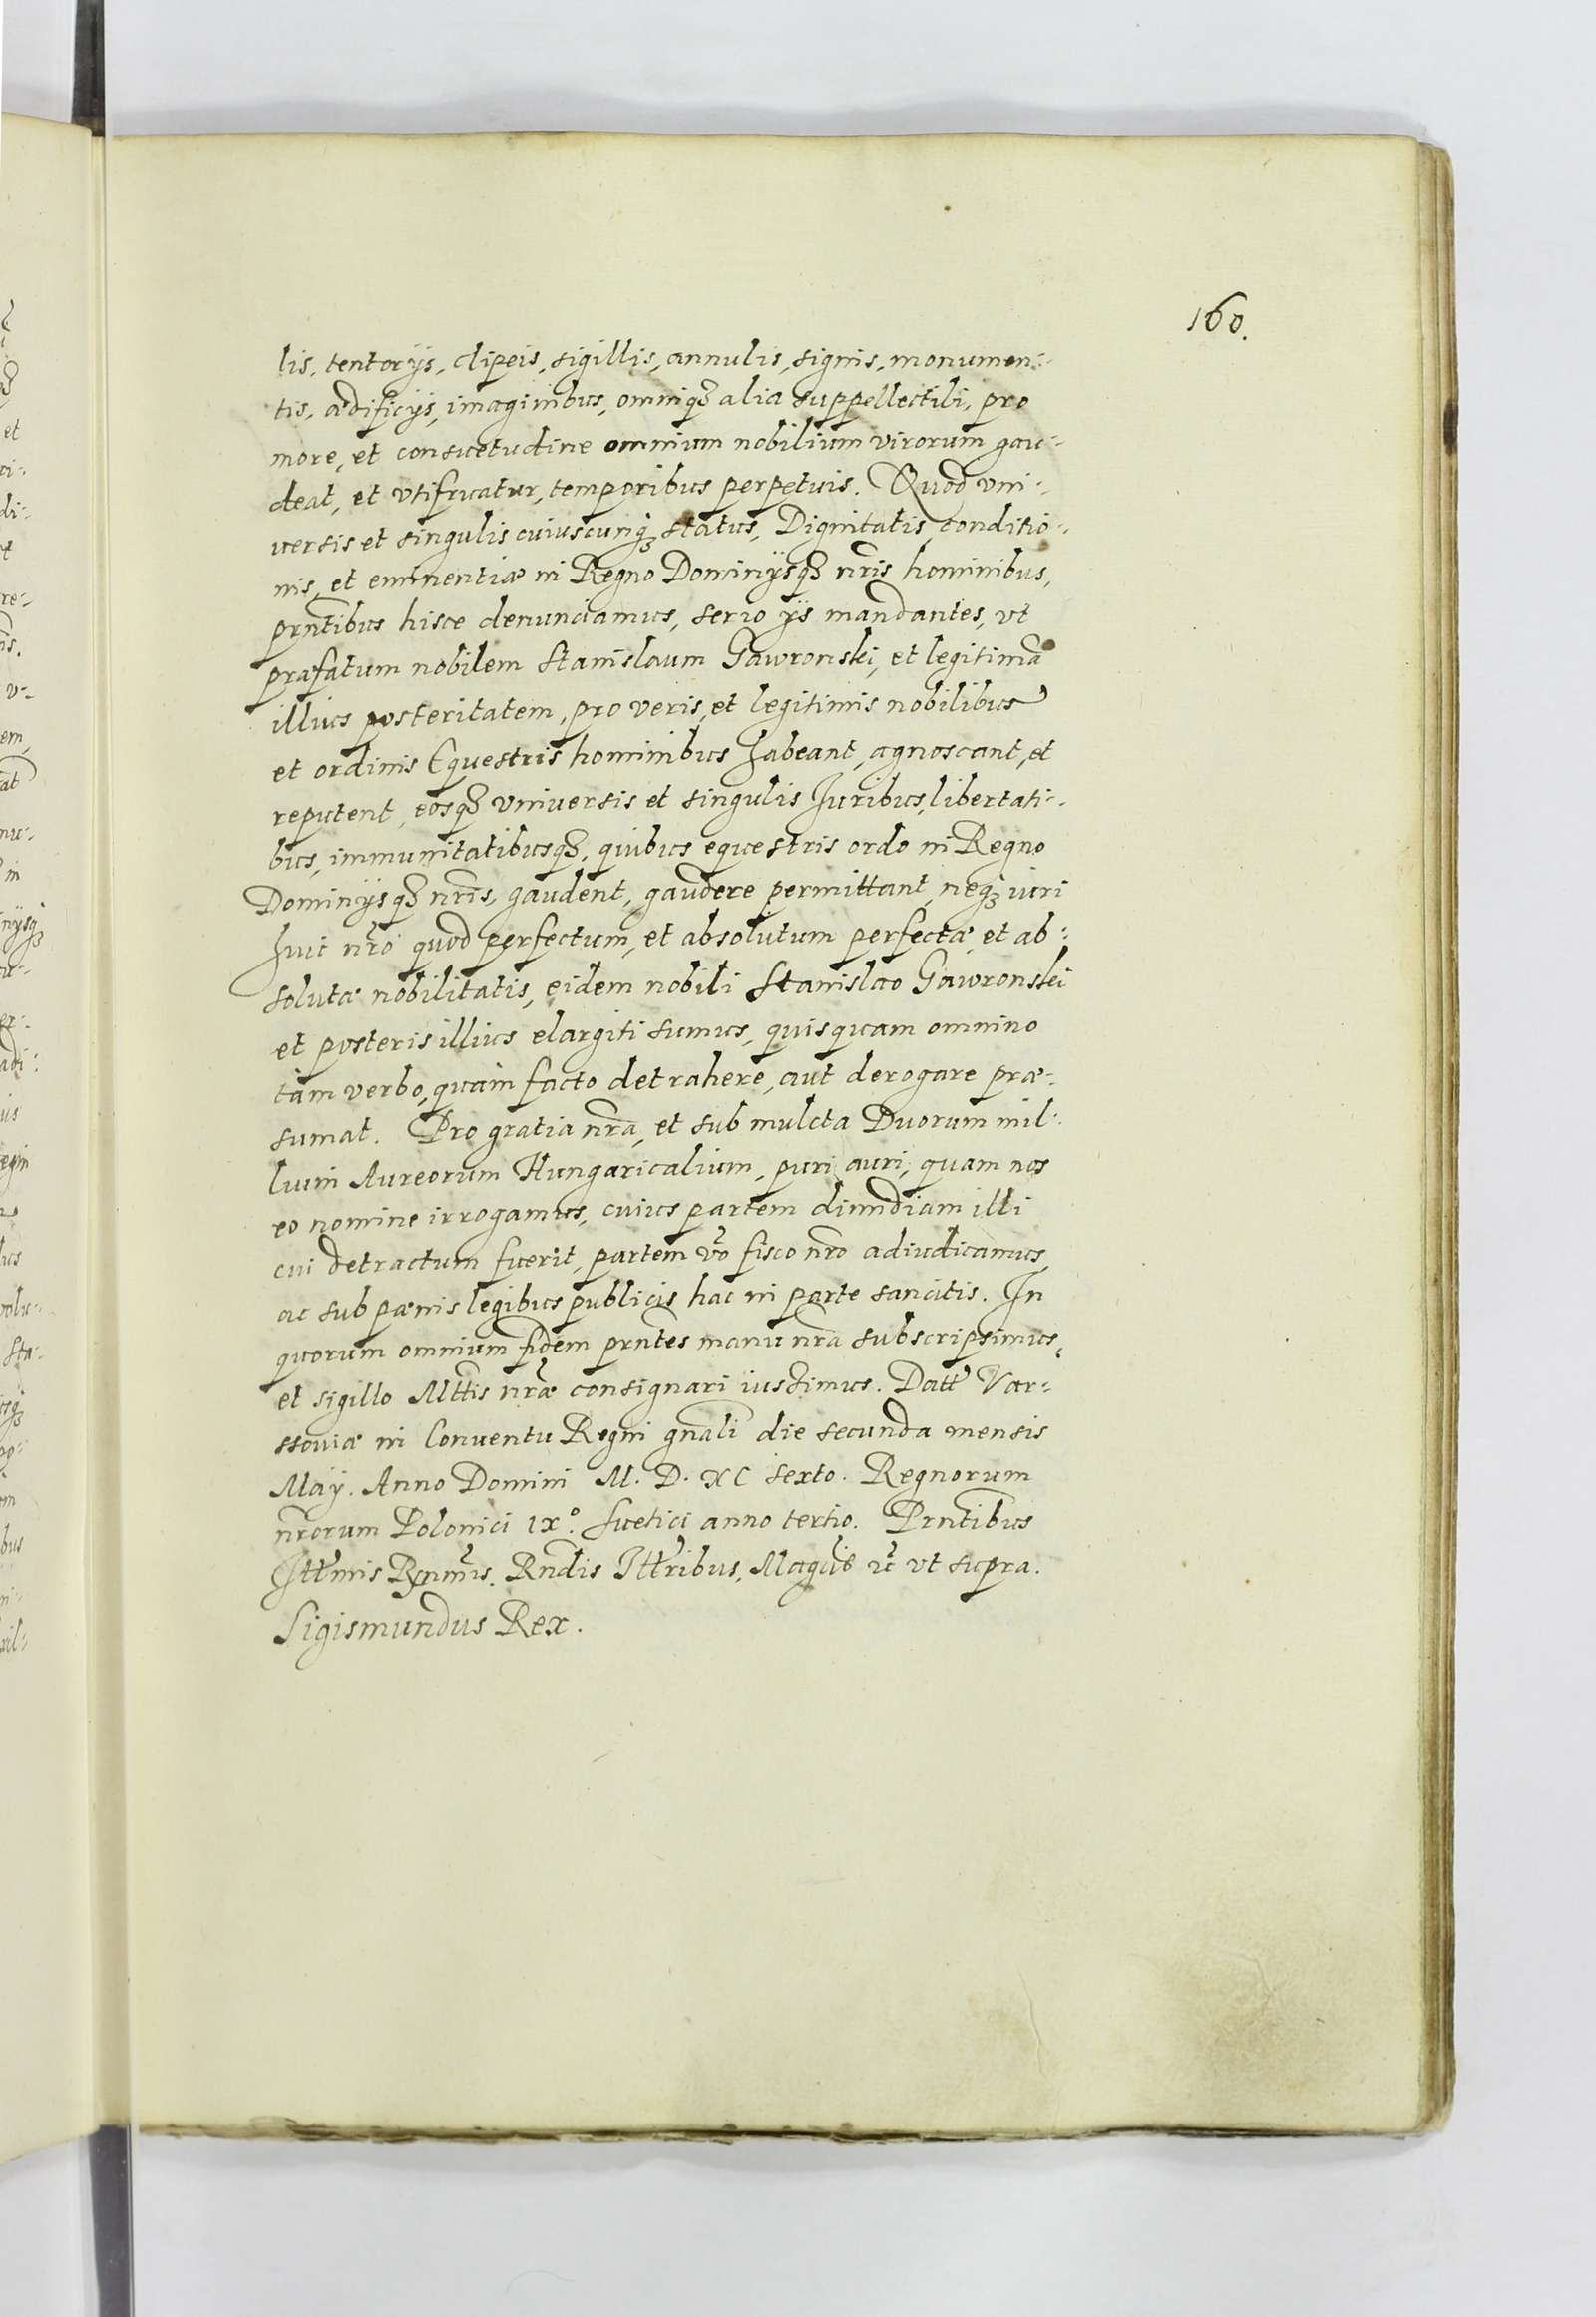 160.
lis, tentorijs, clipeis, sigillis, annulis, signis, monumen-
tis, ædificijs, imaginibus, omniq₃ alia suppellectili, pro
more, et consuetudine omnium nobilium virorum gau-
deat, et vtifruatur, temporibus perpetuis. Quod vni-
uersis et singulis cuiuscunq₃ status, Dignitatis, conditio-
nis, et eminentiæ in Regno Dominijsq₃ nr̃is hominibus,
prñtibus hisce denunciamus, serio ijs mandantes, vt
præfatum nobilem Stanislaum Gawronski, et legitimã
illius posteritatem, pro veris, et legitimis nobilibus
et ordinis Equestris hominibus habeant, agnoscant, et
reputent, eosq₃ vniuersis et singulis Iuribus, libertati-
bus, immunitatibusq₃, quibus equestris ordo in Regno
Dominijsq₃ nr̃is, gaudent, gaudere permittant, neq₃ iuri
huic nr̃o quod perfectum, et absolutum perfectæ et ab-
solutæ nobilitatis, eidem nobili Stanislao Gawronski
et posteris illius elargiti sumus, quisquam omnino
tam verbo, quam facto detrahere, aut derogare præ-
sumat. Pro gratia nr̃a, et sub mulcta Duorum mil-
lium Aureorum Hungaricalium, puri auri, quam nos
eo nomine irrogamus, cuius partem dimidiam illi
cui detractum fuerit, partem vo͂ fisco nr̃o adiudicamus,
ac sub pænis legibus publicis hac in parte sancitis. In
quorum omnium fidem prñtes manu nr̃a subscripsimus,
et sigillo Mttis nr̃æ consignari iussimus. Datt Var-
ssouiæ in Conuentu Regni gñali die secunda mensis
Maij. Anno Domini M. D. XC sexto. Regnorum
nr̃orum Polonici IXº. Suetici anno tertio. Prñtibus
Ittr̃mis Rx̃nmis. Rñdis Ittribus, Magcis et͂c vt supra.
Sigismundus Rex.